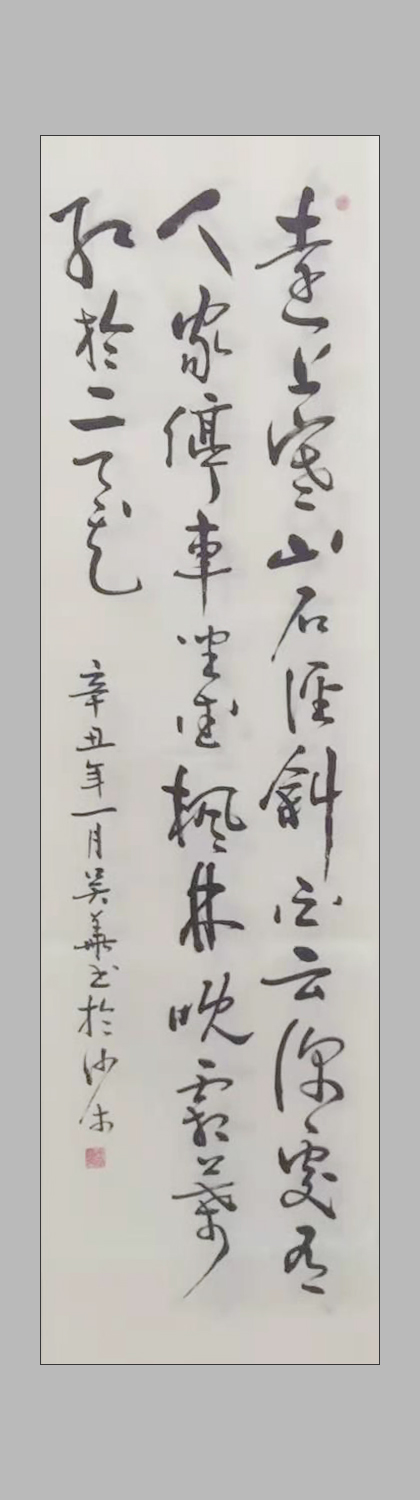 遠上寒山石徑斜白云深處有
人家停車坐愛楓林晚霜葉
紅於二月花
辛丑年一月吴華书於沙市